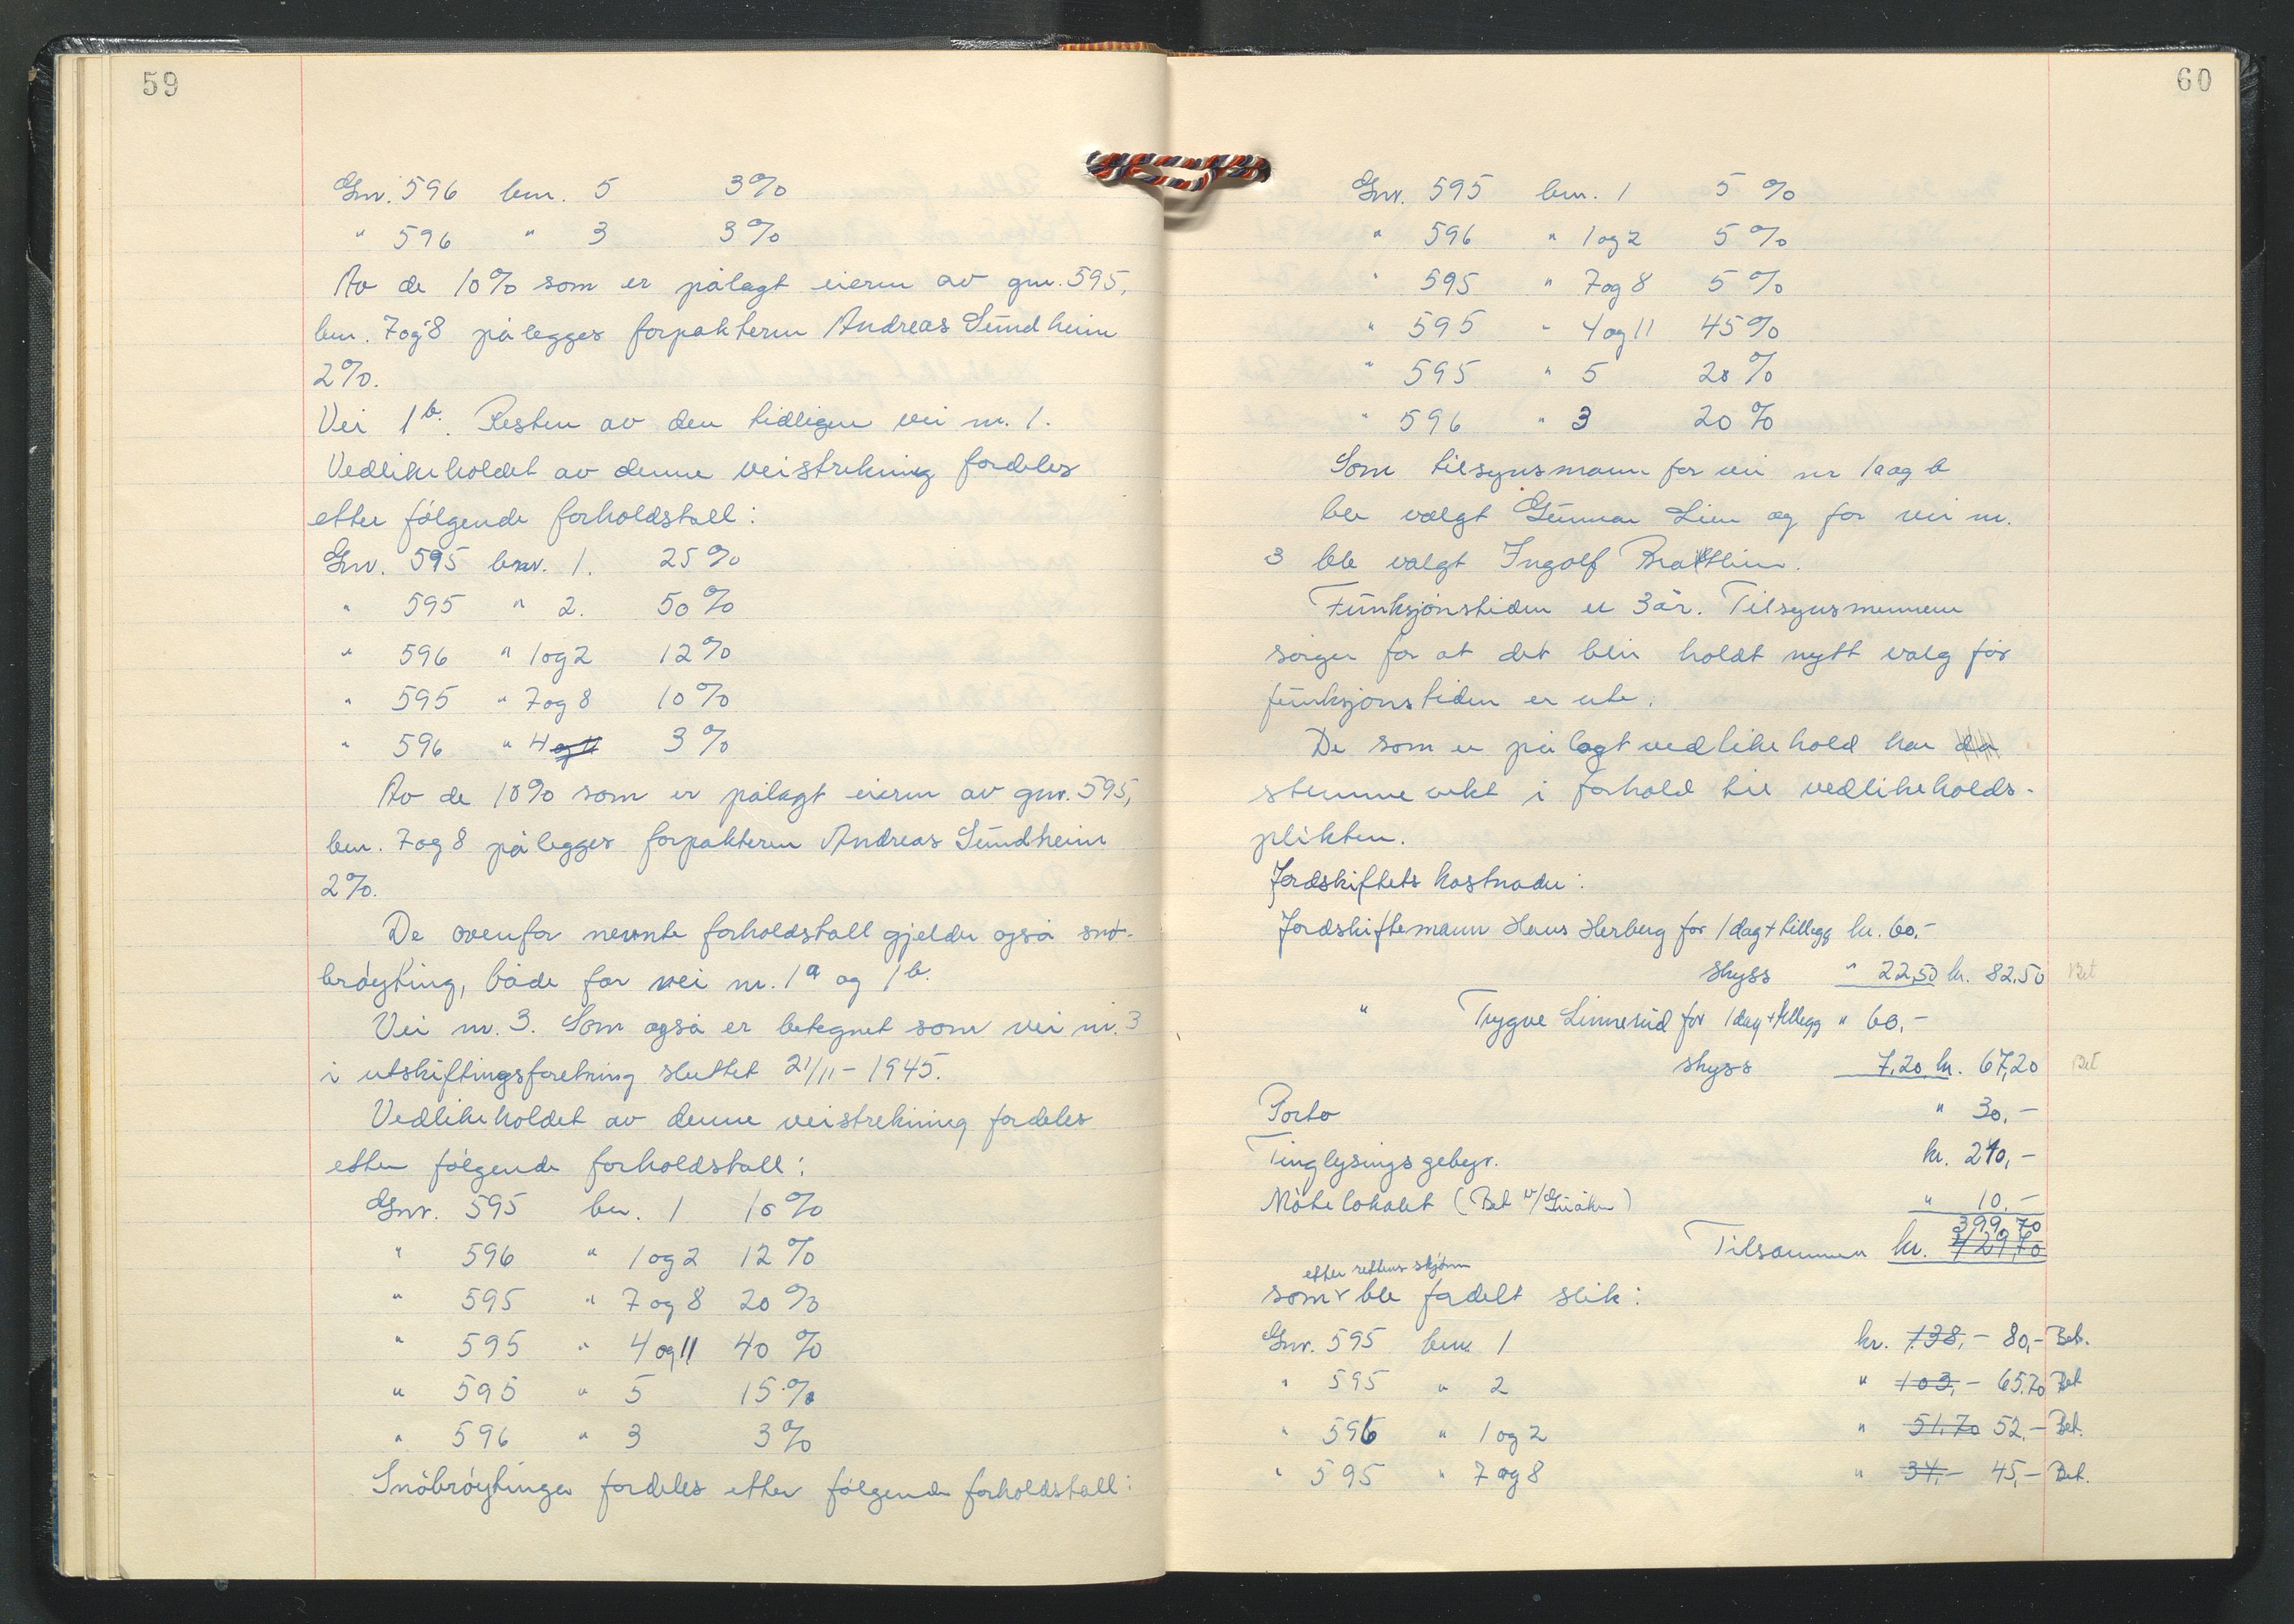 59
Gnr. 596 bnr. 5 3%
" 596 " 3 3%
Av de 10% som er pålagt eieren av gnr. 595,
bnr. 7 og 8 pålegges forpakteren Andreas Sundheim
2%.
Vei 1b. Resten av den tidligere vei nr. 1.
Vedlikeholdet av denne veistrekning fordeles
etter følgende forholdstall:
Gnr. 595 bnr. 1. 25%
" 595 " 2. 50%
" 596 " 1 og 2 12%
" 595 " 7 og 8 10%
" 596 " 4 og 11 3%
Av de 10% som er pålagt eieren av gnr. 595,
bnr. 7 og 8 pålegges forpakteren Andreas Sundheim
2%.
De ovenfor nevnte forholdstall gjelder også snø-
brøyting, både for vei nr. 1a og 1b.
Vei nr. 3. Som også er betegnet som vei nr. 3
i utskiftingsforretning sluttet 21/11 - 1945.
Vedlikeholdet av denne veistrekning fordeles
etter følgende forholdstall:
Gnr. 595 bnr. 1 10%
" 596 " 1 og 2 12%
" 595 " 7 og 8 20%
" 595 " 4 og 11 40%
" 595 " 5 15%
" 596 " 3 3%
Snöbröytinga fordeles etter følgende forholdstall:
60
Gnr. 595 bnr. 1 5%
" 596 " 1 og 2 5%
" 595 " 7 og 8 5%
" 595 " 4 og 11 45%
" 595 " 5 20%
" 596 " 3 20%
Som tilsynsmann for vei nr 1a og b
ble valgt Gunnar Lien og for vei nr.
3 ble valgt Ingolf
Funksjonstiden er 3 år. Tilsynsmennene
sørger for at det blir holdt nytt valg før
funksjonstiden er ute.
De som er pålagt vedlikehold har da
stemmevekt i forhold til vedlikeholds-
plikten.
Jordskiftets kostnader:
Jordskiftemann Hans Herberg for 1 dag + tillegg kr. 60,-
skyss " 22,50 kr. 82,50 Bet
" Trygve Linnerud for 1 dag + tillegg " 60,-
skyss 7,20 kr. 67,20 Bet
Porto " 30,-
Tinglysingsgebyr. kr. 210,-
Møtelokalet (Bet v/ ) " 10,-
399,70
Tilsammen kr. 429,70
etter rettens skjønn
som ble fordelt slik:
Gnr. 595 bnr. 1 kr. 138,- 80,- Bet.
" 595 " 2 " 103,- 65,70 Bet
" 596 " 1 og 2 " 51,70 52,- Bet.
" 595 " 7 og 8 " 34,- 45,- Bet.